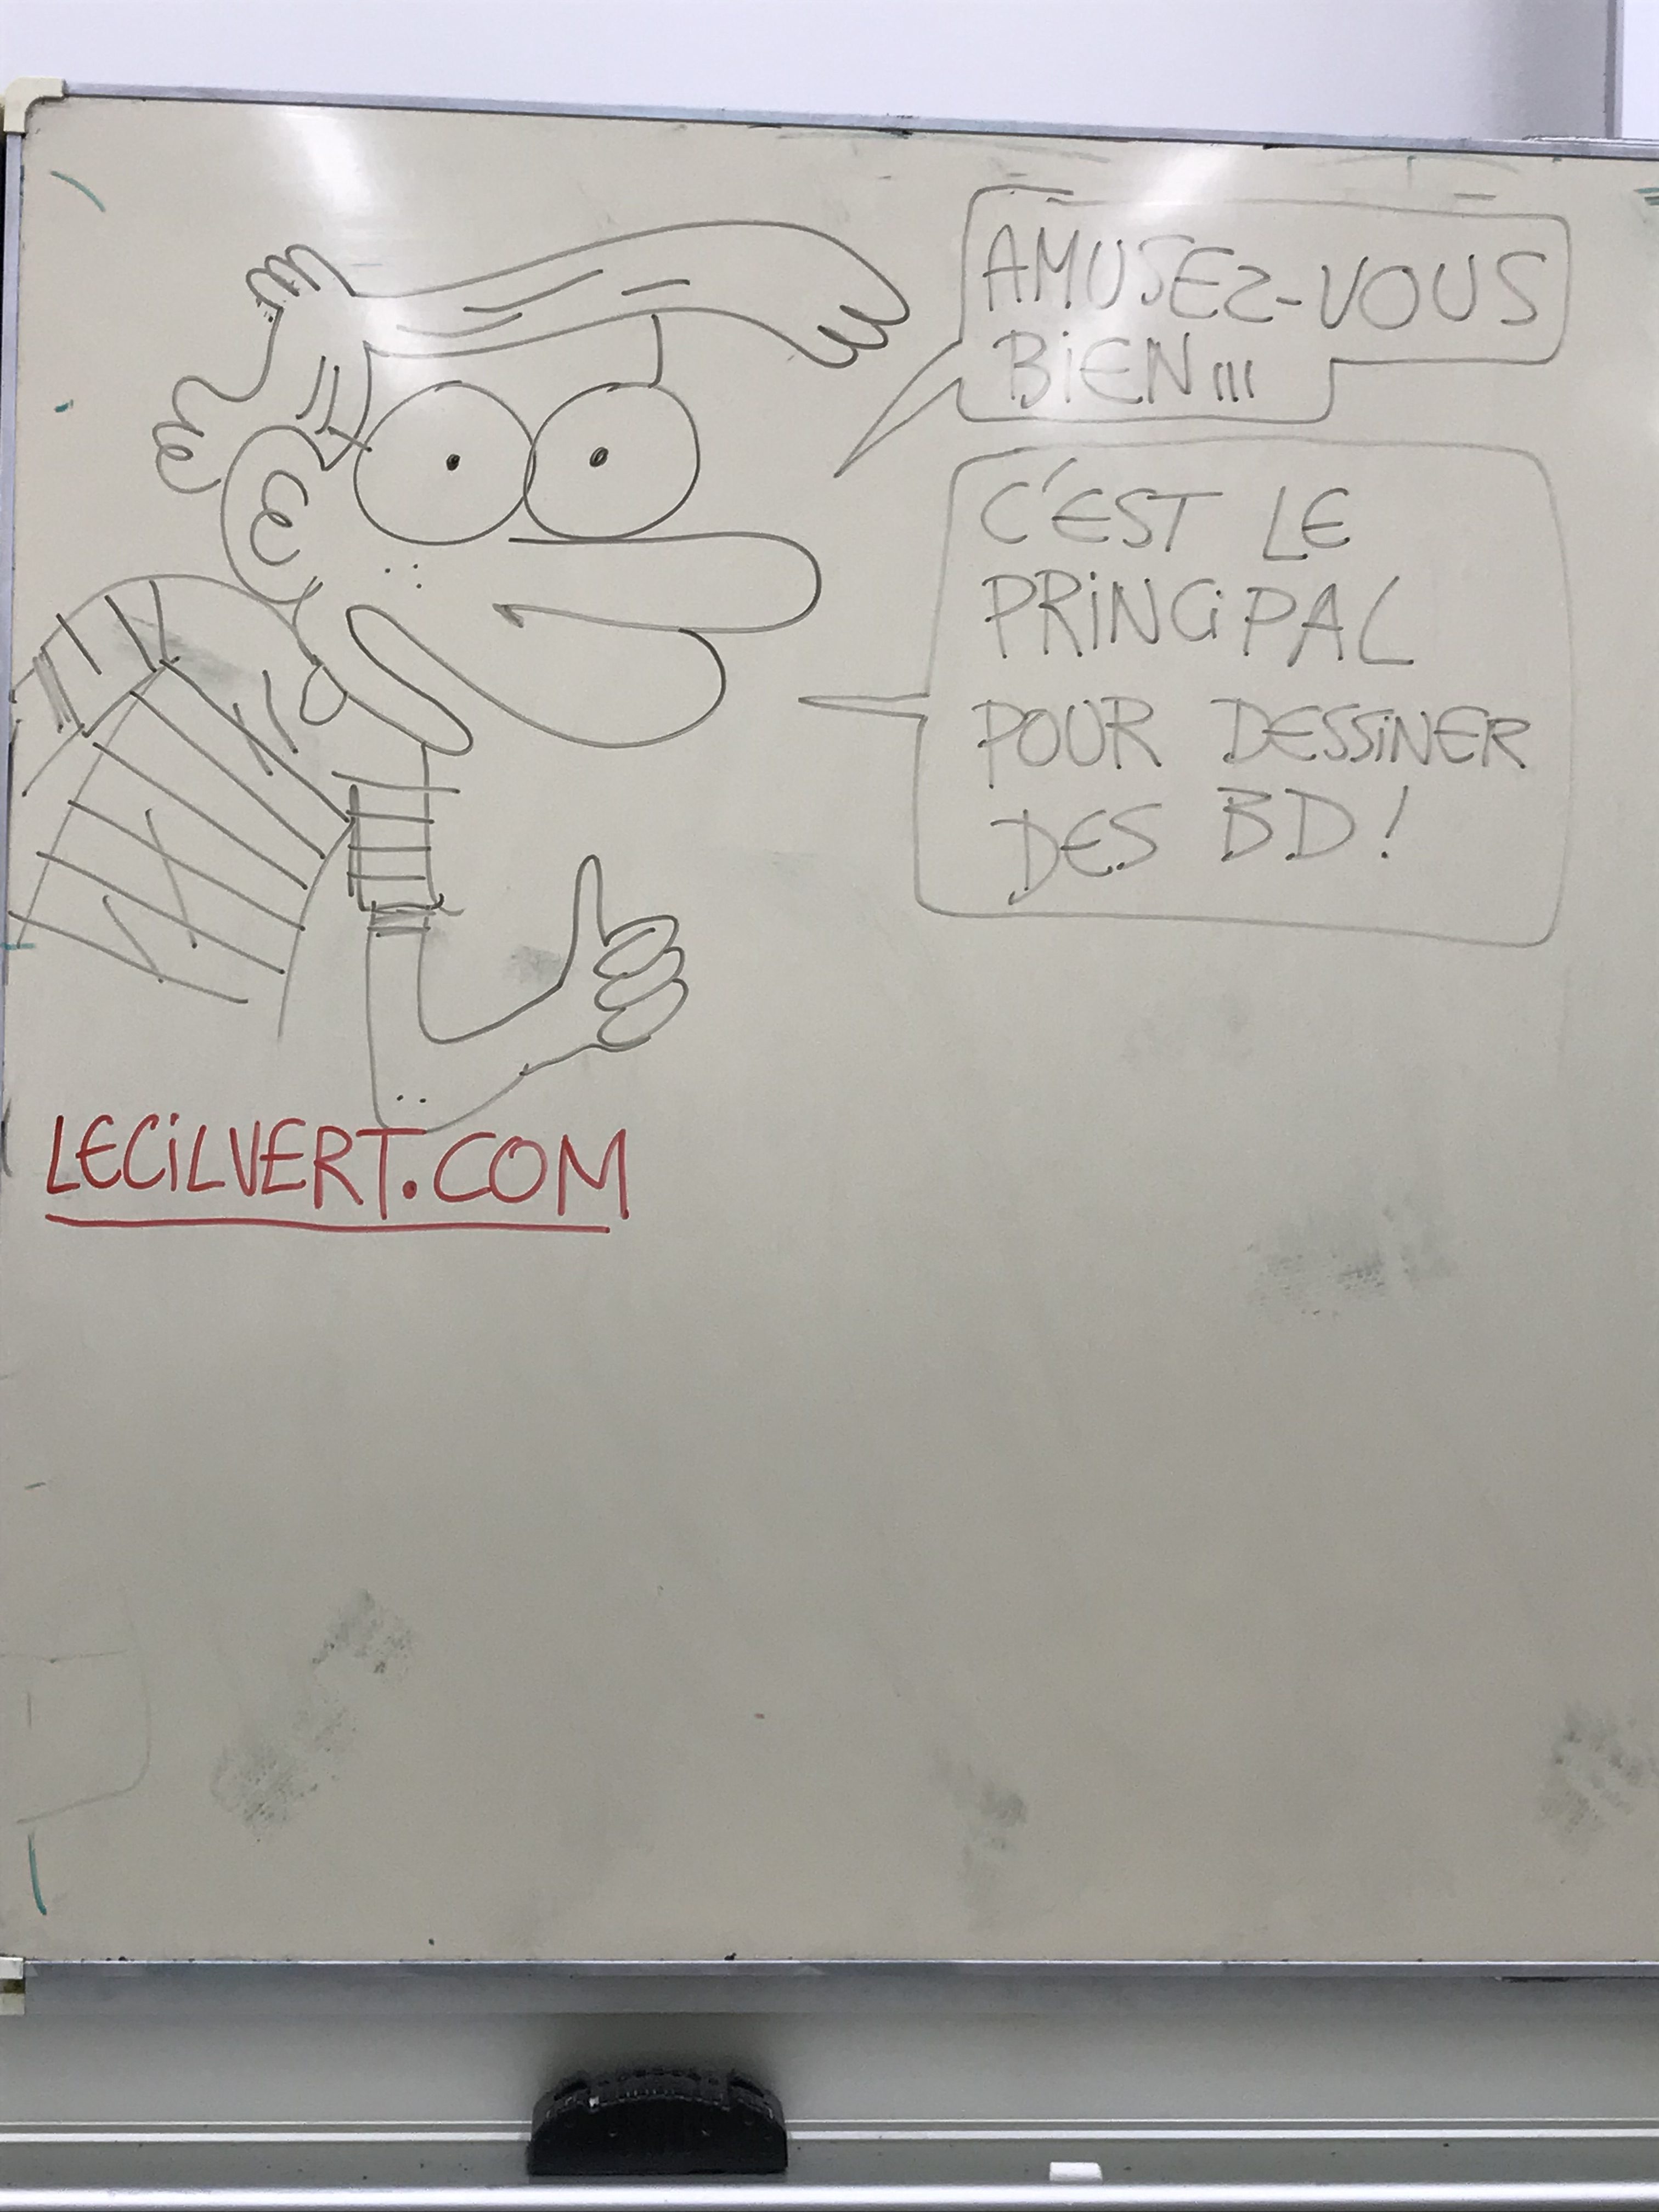 AMUSEZ-VOUS
BiEN!!!
C'EST LE
PRiNCiPAL
POUR DESSiNER
DES BD!
LECiLVERT.COM